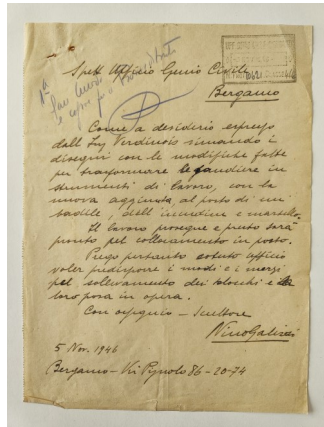 Spett. Ufficio Genio Civile
Bergamo
Come a desiderio espresso
dall'Ing Verdinois rimando i
disegni con le modifiche fatte
per trasformare le bandiere in
strumenti di lavoro, con la
nuova aggiunta, al posto di un
badile, dell'incudine e martello.
Il lavoro prosegue e presto sarà
pronto pel collocamento in posto.
Prego pertanto codesto Ufficio
voler predisporre i modi e i mezzi
pel sollevamento dei blocchi e la
loro posa in opera.
Con ossequio - Scultore
Nino Galizzi
5 Nov. 1946
Bergamo - Via Pignolo 86 - 20-74